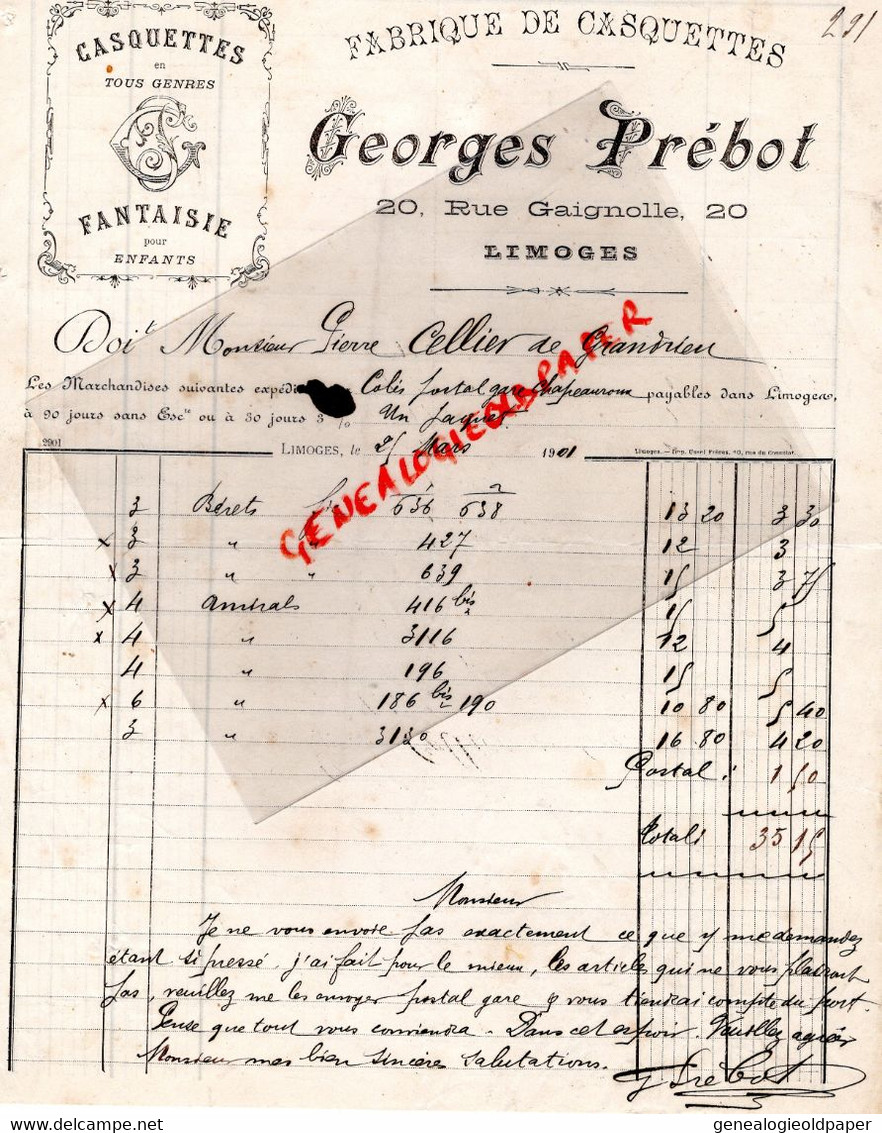 291
CASQUETTES
en
TOUS GENRES
FANTAISIE
pour
ENFANTS
FABRIQUE DE CASQUETTES
Georges Prébot
20, Rue Gaignolle, 20
LIMOGES
Doit Monsieur Pierre Cellier de Grandrieu
Les Marchandises suivantes expédi Colis postal gare Chapeauroux payables dans Limoges,
à 90 jours sans Esc.te ou à 30 jours 3 % Un paquet
2901 LIMOGES, le 25 Mars 1901
3 Bérets 636 638 13 20 3 30
x 3 " " 427 12 3
x 3 " " 639 15 3 75
x 4 Amirals 416 bis 15 5
x 4 " 3116 12 4
4 " 196 15 5
x 6 " 186 bis 190 10 80 5 40
3 " 3130 16 80 4 20
Postal : 1 50
Total : 35 15
Monsieur
Je ne vous envoie pas exactement ce que y me demandez
étant si pressé, j'ai fait pour le mieux, les articles qui ne vous plairont
pas, veuillez me les envoyer postal gare je vous tiendrai compte du port.
Pense que tout vous conviendra. Dans cet espoir. Veuillez agréer
Monsieur mes bien sincères salutations.
G Prébot
GENEALOGIEOLDPAPER
delcampe.net
genealogieoldpaper